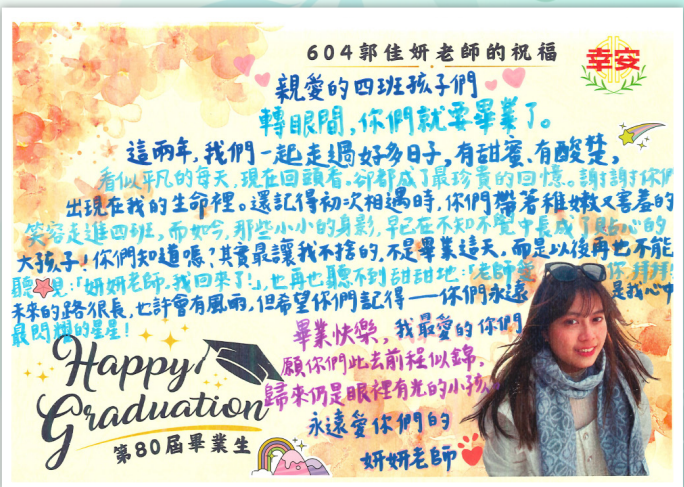 604郭佳妍老師的祝福
幸安
親愛的四班孩子們
轉眼間，你們就要畢業了。
這兩年，我們一起走過好多日子，有甜蜜、有酸楚，
看似平凡的每天，現在回頭看，卻都成了最珍貴的回憶。謝謝你們
出現在我的生命裡。還記得初次相遇時，你們帶著稚嫩又害羞的
笑容走進四班，而如今，那些小小的身影，早已在不知不覺中長成了貼心的
大孩子！你們知道嗎？其實最讓我不捨的，不是畢業這天，而是以後再也不能
聽見：「妍妍老師，我回來了！」，也再也聽不到甜甜地：「老師 你 拜拜！
未來的路很長，也許會有風雨，但希望你們記得——你們永遠 是我心中
最閃耀的星星！
畢業快樂，我最愛的你們
願你們此去前程似錦，
歸來仍是眼裡有光的小孩
永遠愛你們的
妍妍老師
Happy
Graduation
第80屆畢業生